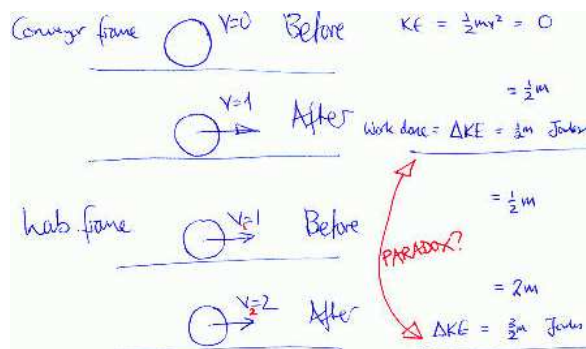 Conveyor frame V=0 Before KE = ½mv² = 0
= ½m
V=1 After Work done = ΔKE = ½m Joules
= ½m
Lab frame V₁=1 Before
PARADOX?
= 2m
V₂=2 After ΔKE = 3/2 m Joules